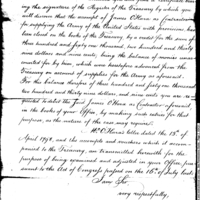 the signature of the Register of the Treasury by which you
will discover that the account of James O'Hara as Contractor
for supplying the Army of the United States with provisions has
been closed on the books of the Treasury, by a credit for the sum of
three hundred and forty one thousand, two hundred and thirty
nine dollars and nine cents, being the balance of monies
by him, which were heretofore advanced from the
Treasury on account of supplies for the Army as aforesaid.
For the balance therefore of three hundred and forty one thousand
two hundred and thirty nine dollars, and nine cents you are re-
quested to debit the said James O'Hara as Contractor afore-
said, in the books of your office, by making such entries for that
purpose, as the nature of the case may require.
Mr O'Hara's letter dated the 15th of
April 1798, and the vouchers which it accom-
panied to the Treasury, are transmitted herewith for the
purpose of being examined and adjusted in your Office pur-
suant to the Act of Congress passed on the 16th of July last.
I am Sir
very respectfully,